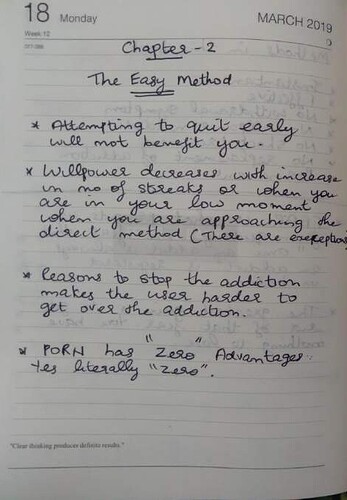 18 Monday
MARCH 2019
Week 12
Chapter - 2
The Easy Method
* Attempting to quit early
will not benefit you.
* Willpower decreases with increase
in no of streaks or when you
are in your low moment
when you are approaching the
direct method (There are exceptions
* Reasons to stop the addiction
makes the user harder to
get over the addiction.
* PORN has "Zero" Advantages.
Yes literally "zero".
"Clear thinking produces definite results."